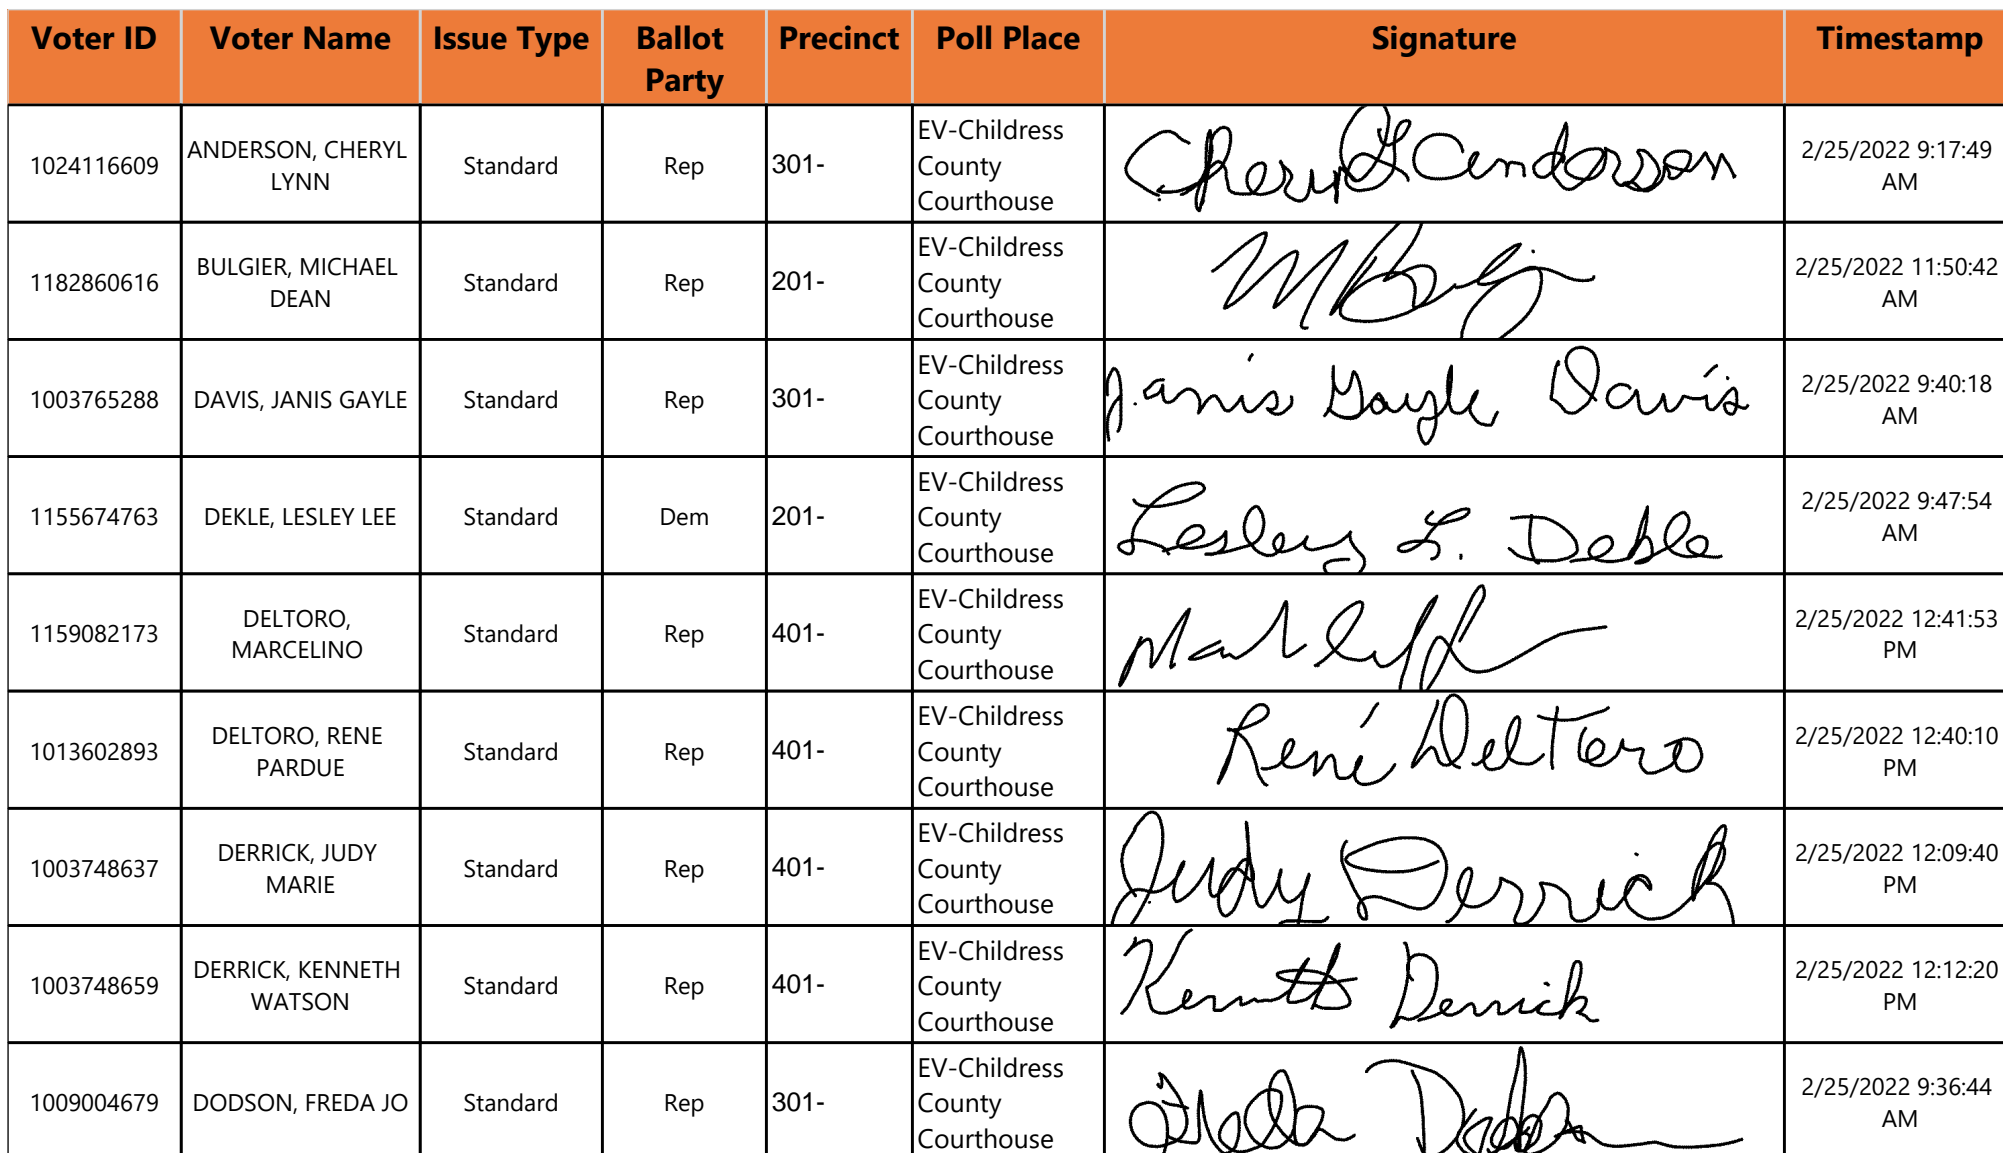 Voter ID Voter Name Issue Type Ballot Party Precinct Poll Place Signature Timestamp
1024116609 ANDERSON, CHERYL LYNN Standard Rep 301- EV-Childress County Courthouse Cheryl L Anderson 2/25/2022 9:17:49 AM
1182860616 BULGIER, MICHAEL DEAN Standard Rep 201- EV-Childress County Courthouse 2/25/2022 11:50:42 AM
1003765288 DAVIS, JANIS GAYLE Standard Rep 301- EV-Childress County Courthouse Janis Gayle Davis 2/25/2022 9:40:18 AM
1155674763 DEKLE, LESLEY LEE Standard Dem 201- EV-Childress County Courthouse Lesley L. Dekle 2/25/2022 9:47:54 AM
1159082173 DELTORO, MARCELINO Standard Rep 401- EV-Childress County Courthouse 2/25/2022 12:41:53 PM
1013602893 DELTORO, RENE PARDUE Standard Rep 401- EV-Childress County Courthouse René DelToro 2/25/2022 12:40:10 PM
1003748637 DERRICK, JUDY MARIE Standard Rep 401- EV-Childress County Courthouse Judy Derrick 2/25/2022 12:09:40 PM
1003748659 DERRICK, KENNETH WATSON Standard Rep 401- EV-Childress County Courthouse Kenneth Derrick 2/25/2022 12:12:20 PM
1009004679 DODSON, FREDA JO Standard Rep 301- EV-Childress County Courthouse 2/25/2022 9:36:44 AM